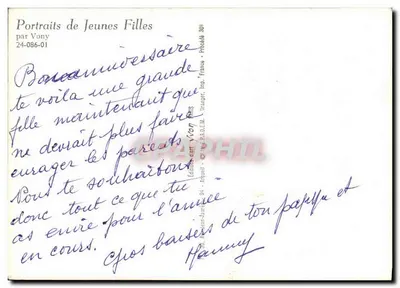 Portraits de Jeunes Filles
par Vony
24-086-01
Bon anniversaire
te voila une grande
fille maintenant que
ne devrait plus faire
enrager les parents
Nous te souhaitons
donc tout ce que tu
as envie pour l'année
en cours.
Gros baisers de ton papy et
Mammy